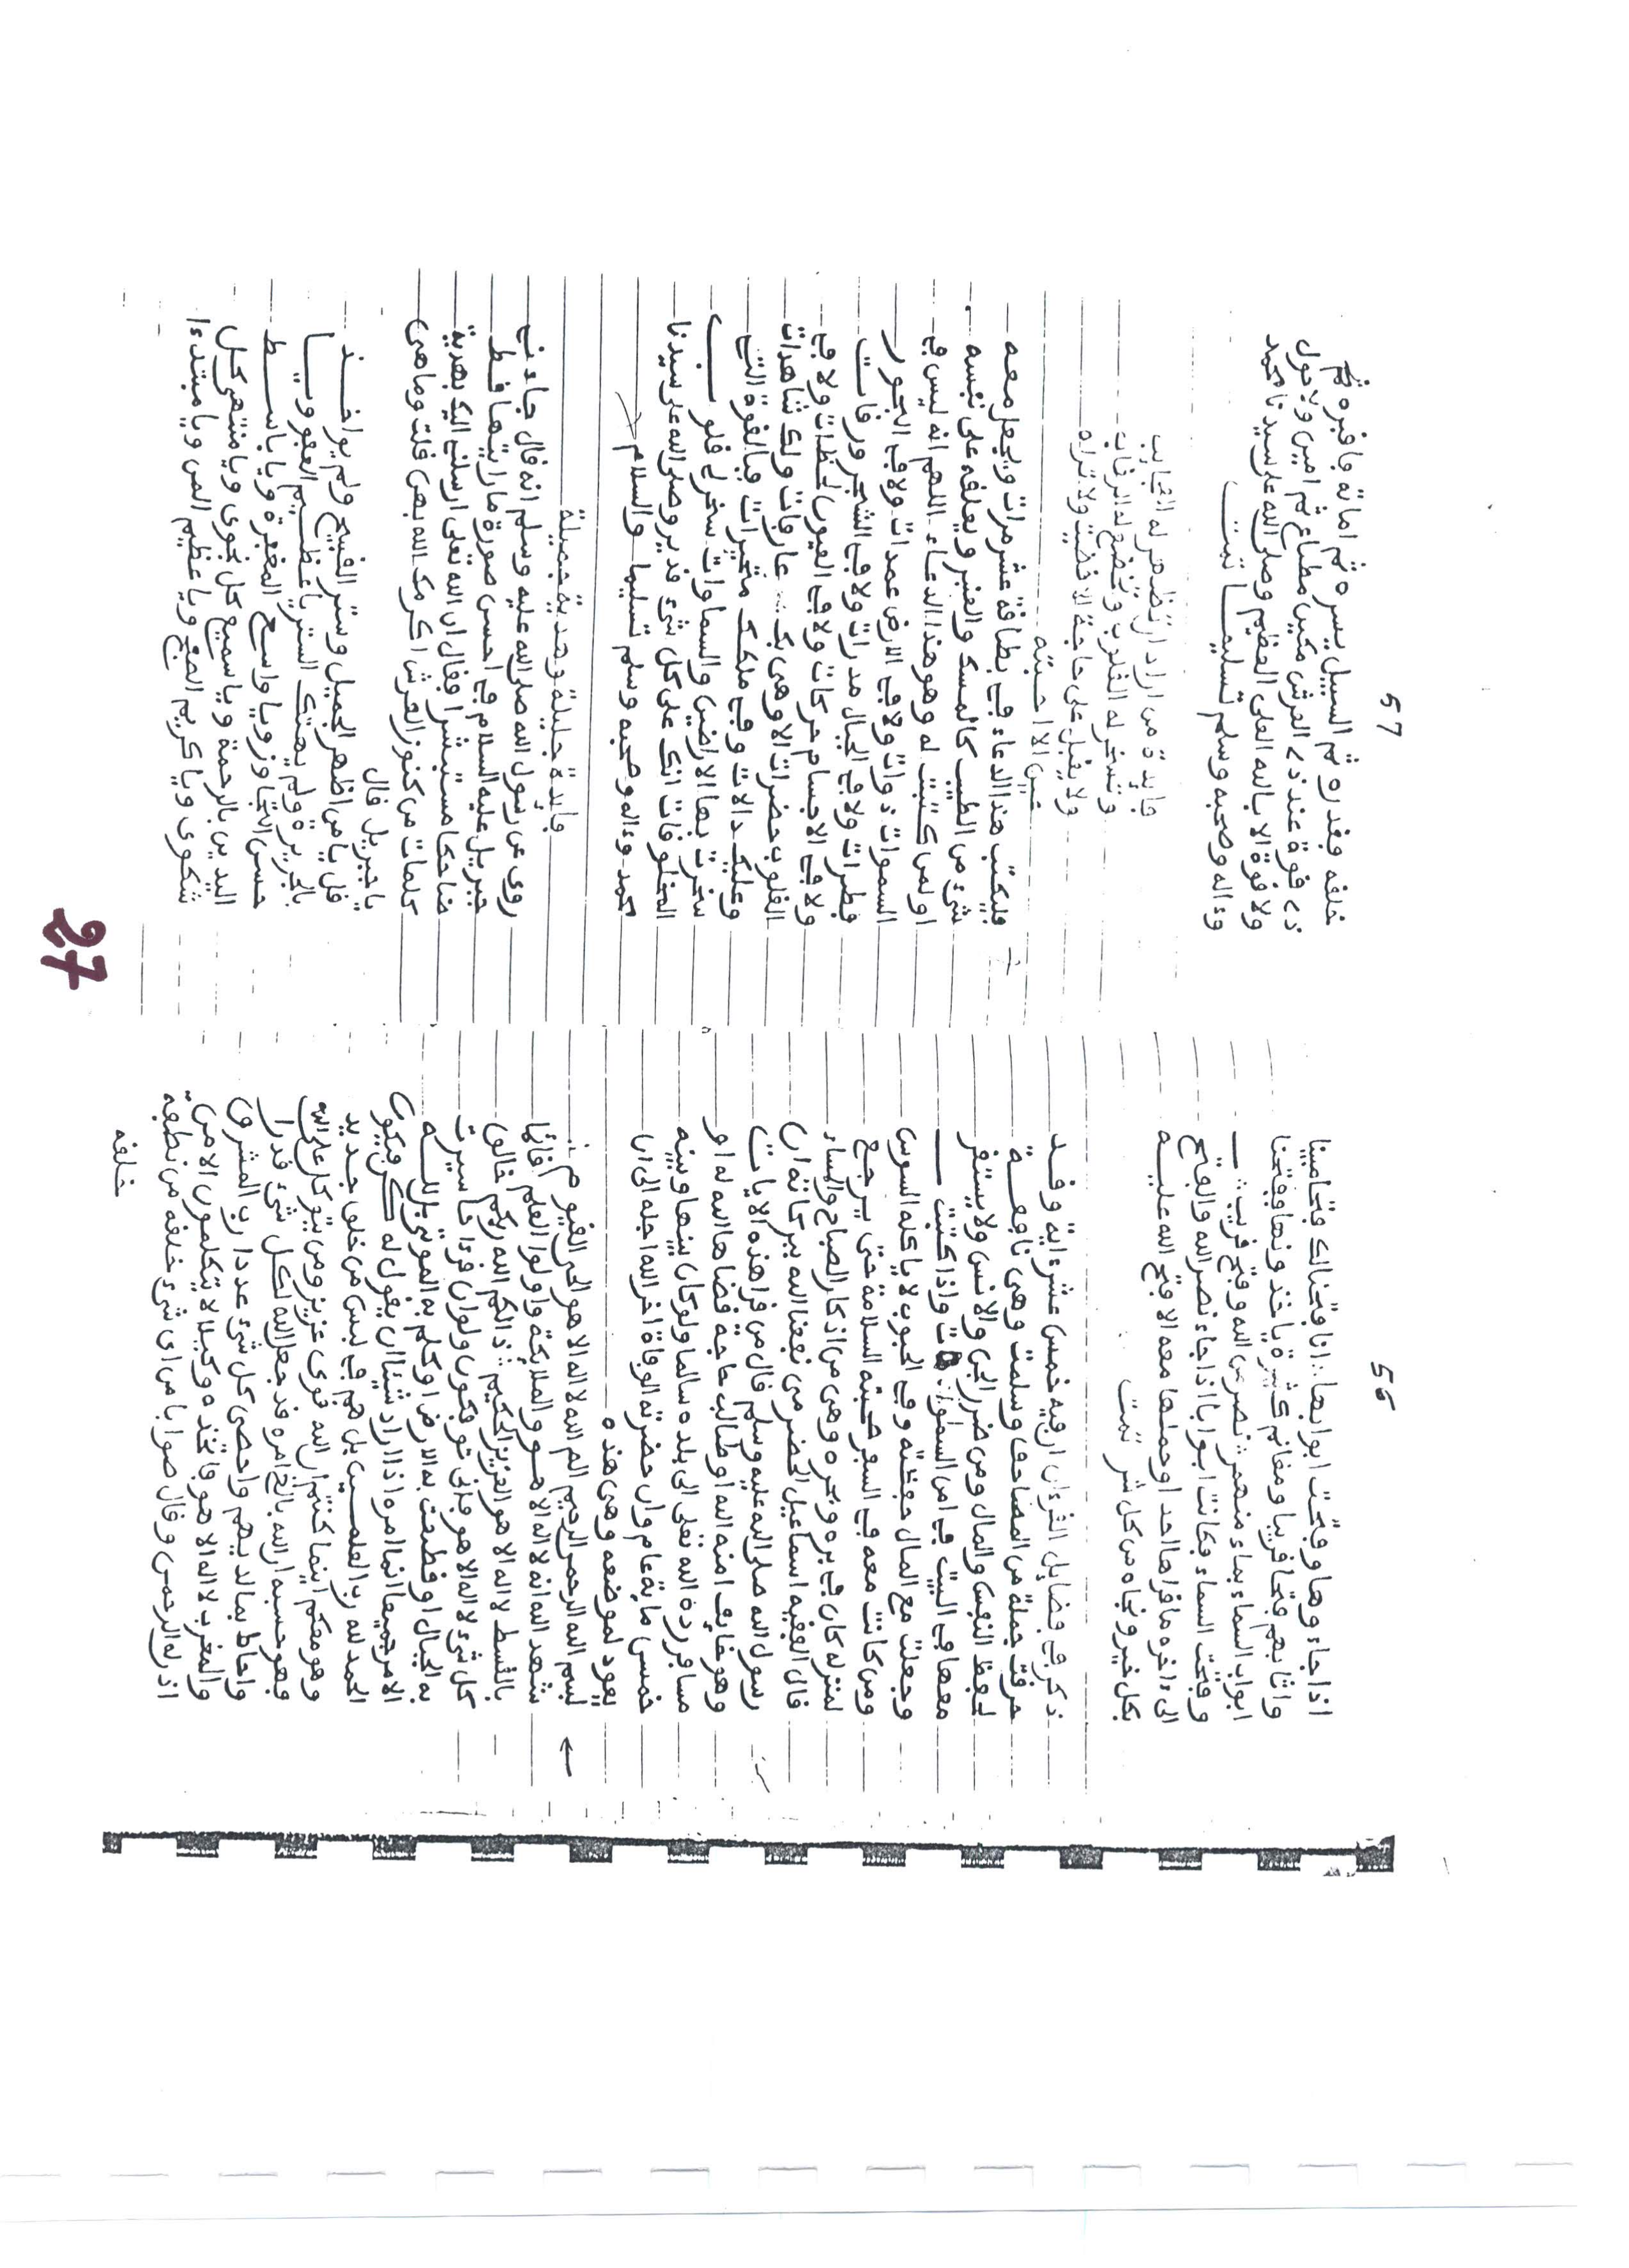 56
اذا جاءوها وفتحت ابوابها انا فتحنا لك فتحا مبينا
واثابهم فتحا قريبا ومغانم كثيرة ياخذونها ففتحنا
ابواب السماء بماء منهمر نصر من الله وفتح قريب
وفتحت السماء فكانت ابوابا اذا جاء نصر الله والفتح
الى ءاخره ما قراها احد او حملها معه الا فتح الله عليه
بكل خير ونجاه من كل شر تمت
ذكر في فضايل القرءان ان فيه خمس عشرة اية وقد
حرقت جملة من المصاحف وسلمت وهي نافعة
لحفظ النفس والمال ومن ضرر الجن والانس ولا يستقر
معها في البيت واذا كتبت
وجعلت مع المال حفظته وفي الحبوب لا ياكله السوس
ومن كانت معه في السفر صحبته السلامة حتى يرجع
لمنزله كان في بره وبحره وهي من اذكار الصباح والمساء
قال الفقيه اسماعيل الحضرمي نفعنا الله ببركاته ان
رسول الله صلى الله عليه وسلم قال من قرا هذه الايات
وهو خايف امنه الله او طالب حاجة قضاها الله له او
مسافر رده الله تعلى الى بلده سالما ولو كان بينها وبينه
خمس ماية عام وان حضرته الوفاة اخر الله اجله الى ان
يعود لموضعه وهي هذه
بسم الله الرحمن الرحيم الم الله لا اله الا هو الحي القيوم
شهد الله انه لا اله الا هو والملايكة واولوا العلم قائما
بالقسط لا اله الا هو العزيز الحكيم ذالكم الله ربكم خالق
كل شيء لا اله الا هو فانى توفكون ولو ان قرءانا سيرت
به الجبال او قطعت به الارض او كلم به الموتى بل لله
الامر جميعا انما امره اذا اراد شيئا ان يقول له كن فيكون
الحمد لله رب العلمين بل هم في لبس من خلق جديد
وهو معكم اينما كنتم ان الله قوي عزيز ومن يتوكل على الله
فهو حسبه ان الله بالغ امره قد جعل الله لكل شيء قدرا
واحاط بما لديهم واحصى كل شيء عددا رب المشرق
والمغرب لا اله الا هو فاتخذه وكيلا لا يتكلمون الا من
اذن له الرحمن وقال صوابا من اي شيء خلقه من نطفة
خلقه
57
خلقه فقدره ثم السبيل يسره ثم اماته فاقبره ثم
ذي قوة عند ذي العرش مكين مطاع ثم امين ولا حول
ولا قوة الا بالله العلي العظيم وصلى الله على سيدنا محمد
وءاله وصحبه وسلم تسليما
فايدة من اراد ان تظهر له العجايب
وتسخر له القلوب وتخضع له الرقاب
ولا يقبل على حاجة الا قضيت ولا تراه
عين الا احبته
فليكتب هذا الدعاء في بطاقة عشر مرات ويجعل معه
شيء من الطيب كالمسك والعنبر ويعلقه على نفسه
او لمن كتبت له وهو هذا الدعاء اللهم انه ليس في
السموات ذوات ولا في الارض عمدات ولا في البحور
قطرات ولا في الجبال مدرات ولا في الشجر ورقات
ولا في الاجسام حركات ولا في العيون لحظات ولا في
القلوب خضرات الا وهي بك عارفات ولك شاهدات
وعليك دالات وفي ملكك متحيرات فبالقوة التي
سخرت بها الارضين والسماوات سخر لي قلوب
المخلوقات انك على كل شيء قدير وصلى الله على سيدنا
محمد وءاله وصحبه وسلم تسليما والسلام
فايدة جليلة وهدية جميلة
روي عن رسول الله صلى الله عليه وسلم انه قال جاءني
جبريل عليه السلام في احسن صورة ما رايتها قط
ضاحكا مستبشرا فقال ان الله تعلى ارسلني اليك بهدية
كلمات من كنوز العرش اكرمك الله بهن قلت وما هي
يا جبريل قال
قل يا من اظهر الجميل وستر القبيح ولم يواخذ
بالجريرة ولم يهتك الستر يا عظيم العفو ويا
حسن التجاوز ويا واسع المغفرة ويا باسط
اليدين بالرحمة ويا سميع كل نجوى ويا منتهى كل
شكوى ويا كريم الصفح ويا عظيم المن ويا مبتدءا
27